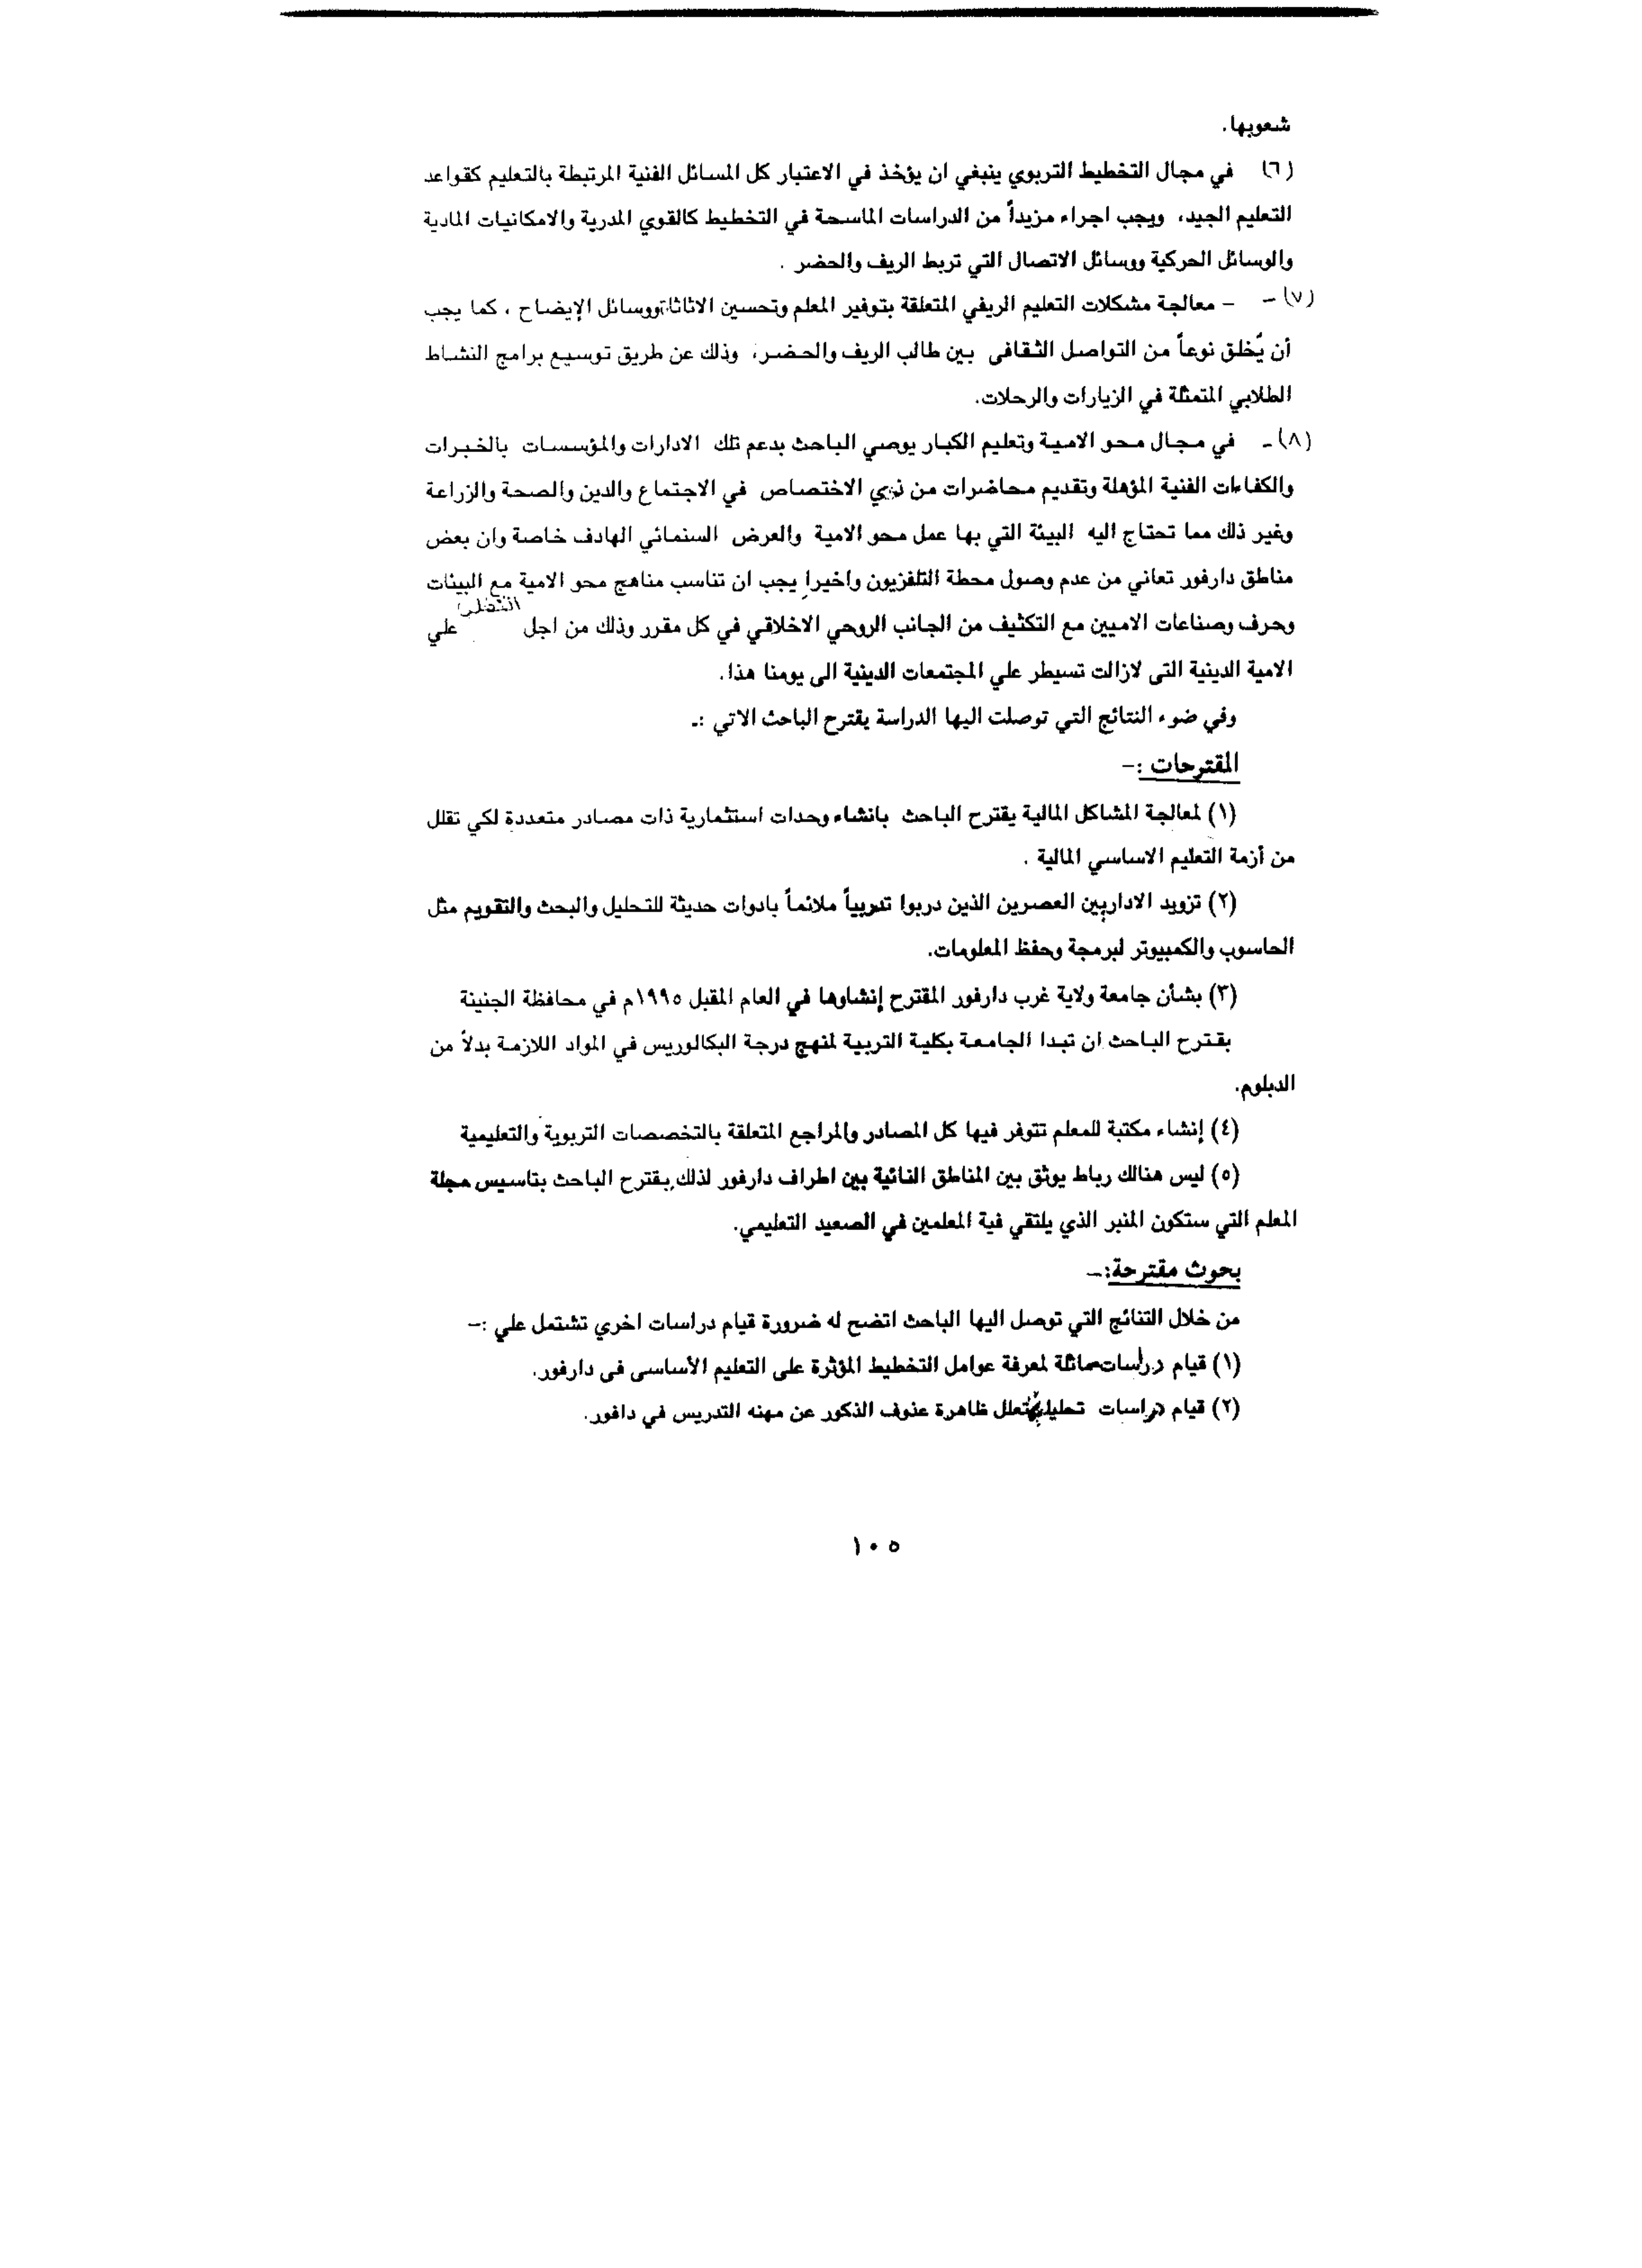 شعوبها.
(٦) في مجال التخطيط التربوي ينبغي ان يؤخذ في الاعتبار كل المسائل الفنية المرتبطة بالتعليم كقواعد
التعليم الجيد، ويجب اجراء مزيداً من الدراسات الماسحة في التخطيط كالقوي المدربة والامكانيات المادية
والوسائل الحركية ووسائل الاتصال التي تربط الريف والحضر .
(٧)- - معالجة مشكلات التعليم الريفي المتعلقة بتوفير المعلم وتحسين الاثاثات ووسائل الإيضاح ، كما يجب
أن يُخلق نوعاً من التواصل الثقافى بين طالب الريف والحضر، وذلك عن طريق توسيع برامج النشاط
الطلابي المتمثلة في الزيارات والرحلات.
(٨)- في مجال محو الامية وتعليم الكبار يوصي الباحث بدعم تلك الادارات والمؤسسات بالخبرات
والكفاءات الفنية المؤهلة وتقديم محاضرات من ذوي الاختصاص في الاجتماع والدين والصحة والزراعة
وغير ذلك مما تحتاج اليه البيئة التي بها عمل محو الامية والعرض السنمائي الهادف خاصة وان بعض
مناطق دارفور تعاني من عدم وصول محطة التلفزيون واخيرا يجب ان تناسب مناهج محو الامية مع البيئات
وحرف وصناعات الاميين مع التكثيف من الجانب الروحي الاخلاقي في كل مقرر وذلك من اجل علي
الامية الدينية التى لازالت تسيطر علي المجتمعات الدينية الى يومنا هذا.
وفي ضوء النتائج التي توصلت اليها الدراسة يقترح الباحث الاتي :-
المقترحات :-
(١) لمعالجة المشاكل المالية يقترح الباحث بانشاء وحدات استثمارية ذات مصادر متعددة لكي تقلل
من أزمة التعليم الاساسي المالية .
(٢) تزويد الاداريين العصرين الذين دربوا تدريباً ملائماً بادوات حديثة للتحليل والبحث والتقويم مثل
الحاسوب والكمبيوتر لبرمجة وحفظ المعلومات.
(٣) بشأن جامعة ولاية غرب دارفور المقترح إنشاوها في العام المقبل ١٩٩٥م في محافظة الجنينة
يقترح الباحث ان تبدا الجامعة بكلية التربية لمنهج درجة البكالوريس في المواد اللازمة بدلاً من
الدبلوم.
(٤) إنشاء مكتبة للمعلم تتوفر فيها كل المصادر والمراجع المتعلقة بالتخصصات التربوية والتعليمية
(٥) ليس هنالك رباط يوثق بين المناطق النائية بين اطراف دارفور لذلك يقترح الباحث بتاسيس مجلة
المعلم التي ستكون المنبر الذي يلتقي فية المعلمين في الصعيد التعليمي.
بحوث مقترحة:-
من خلال التنائج التي توصل اليها الباحث اتضح له ضرورة قيام دراسات اخري تشتمل علي :-
(١) قيام دراسات مماثلة لمعرفة عوامل التخطيط المؤثرة على التعليم الأساسى فى دارفور.
(٢) قيام دراسات تعلل ظاهرة عذوف الذكور عن مهنه التدريس في دافور.
١٠٥